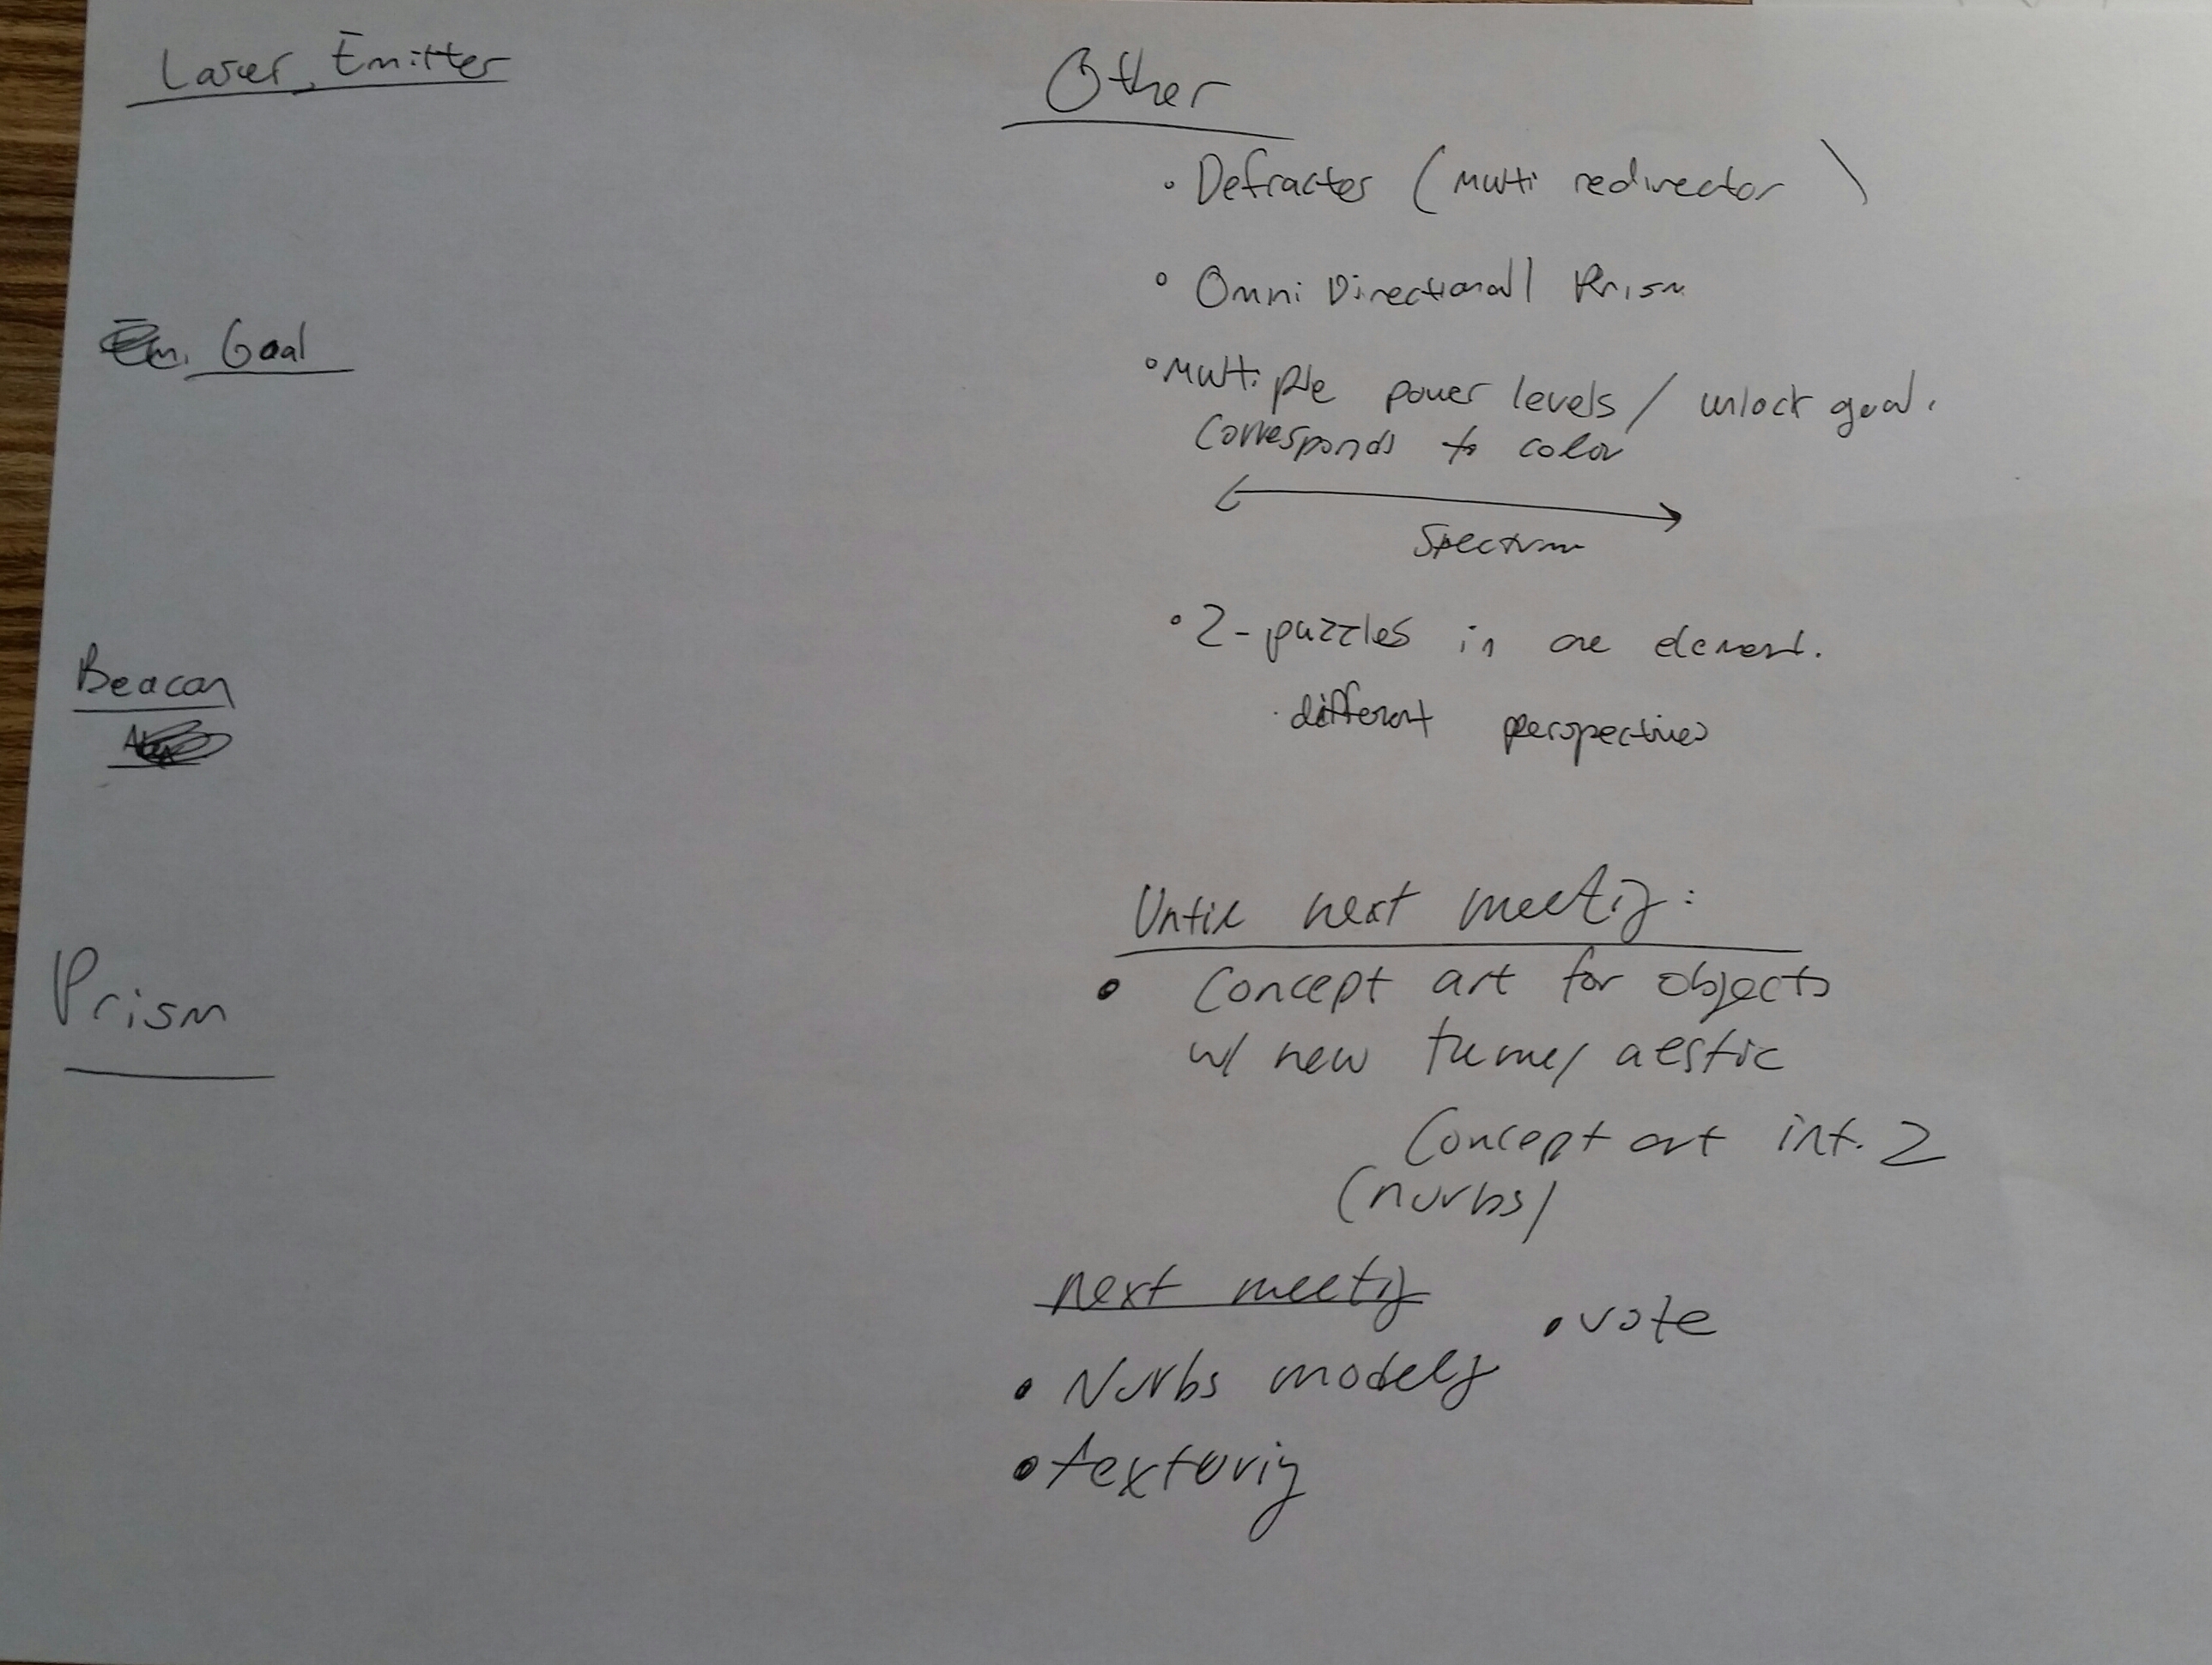 Laser Emitter
Goal
Beacon
Prism
Other
• Defractor (multi redirector)
• Omni Directional Prism
• Multiple power levels / unlock goal.
corresponds to color
Spectrum
• 2-puzzles in one element.
· different perspectives
Until next meetig:
• Concept art for objects
w/ new
Concept art int. 2
(nurbs)
next meetig
• vote
• Nurbs models
• texturig